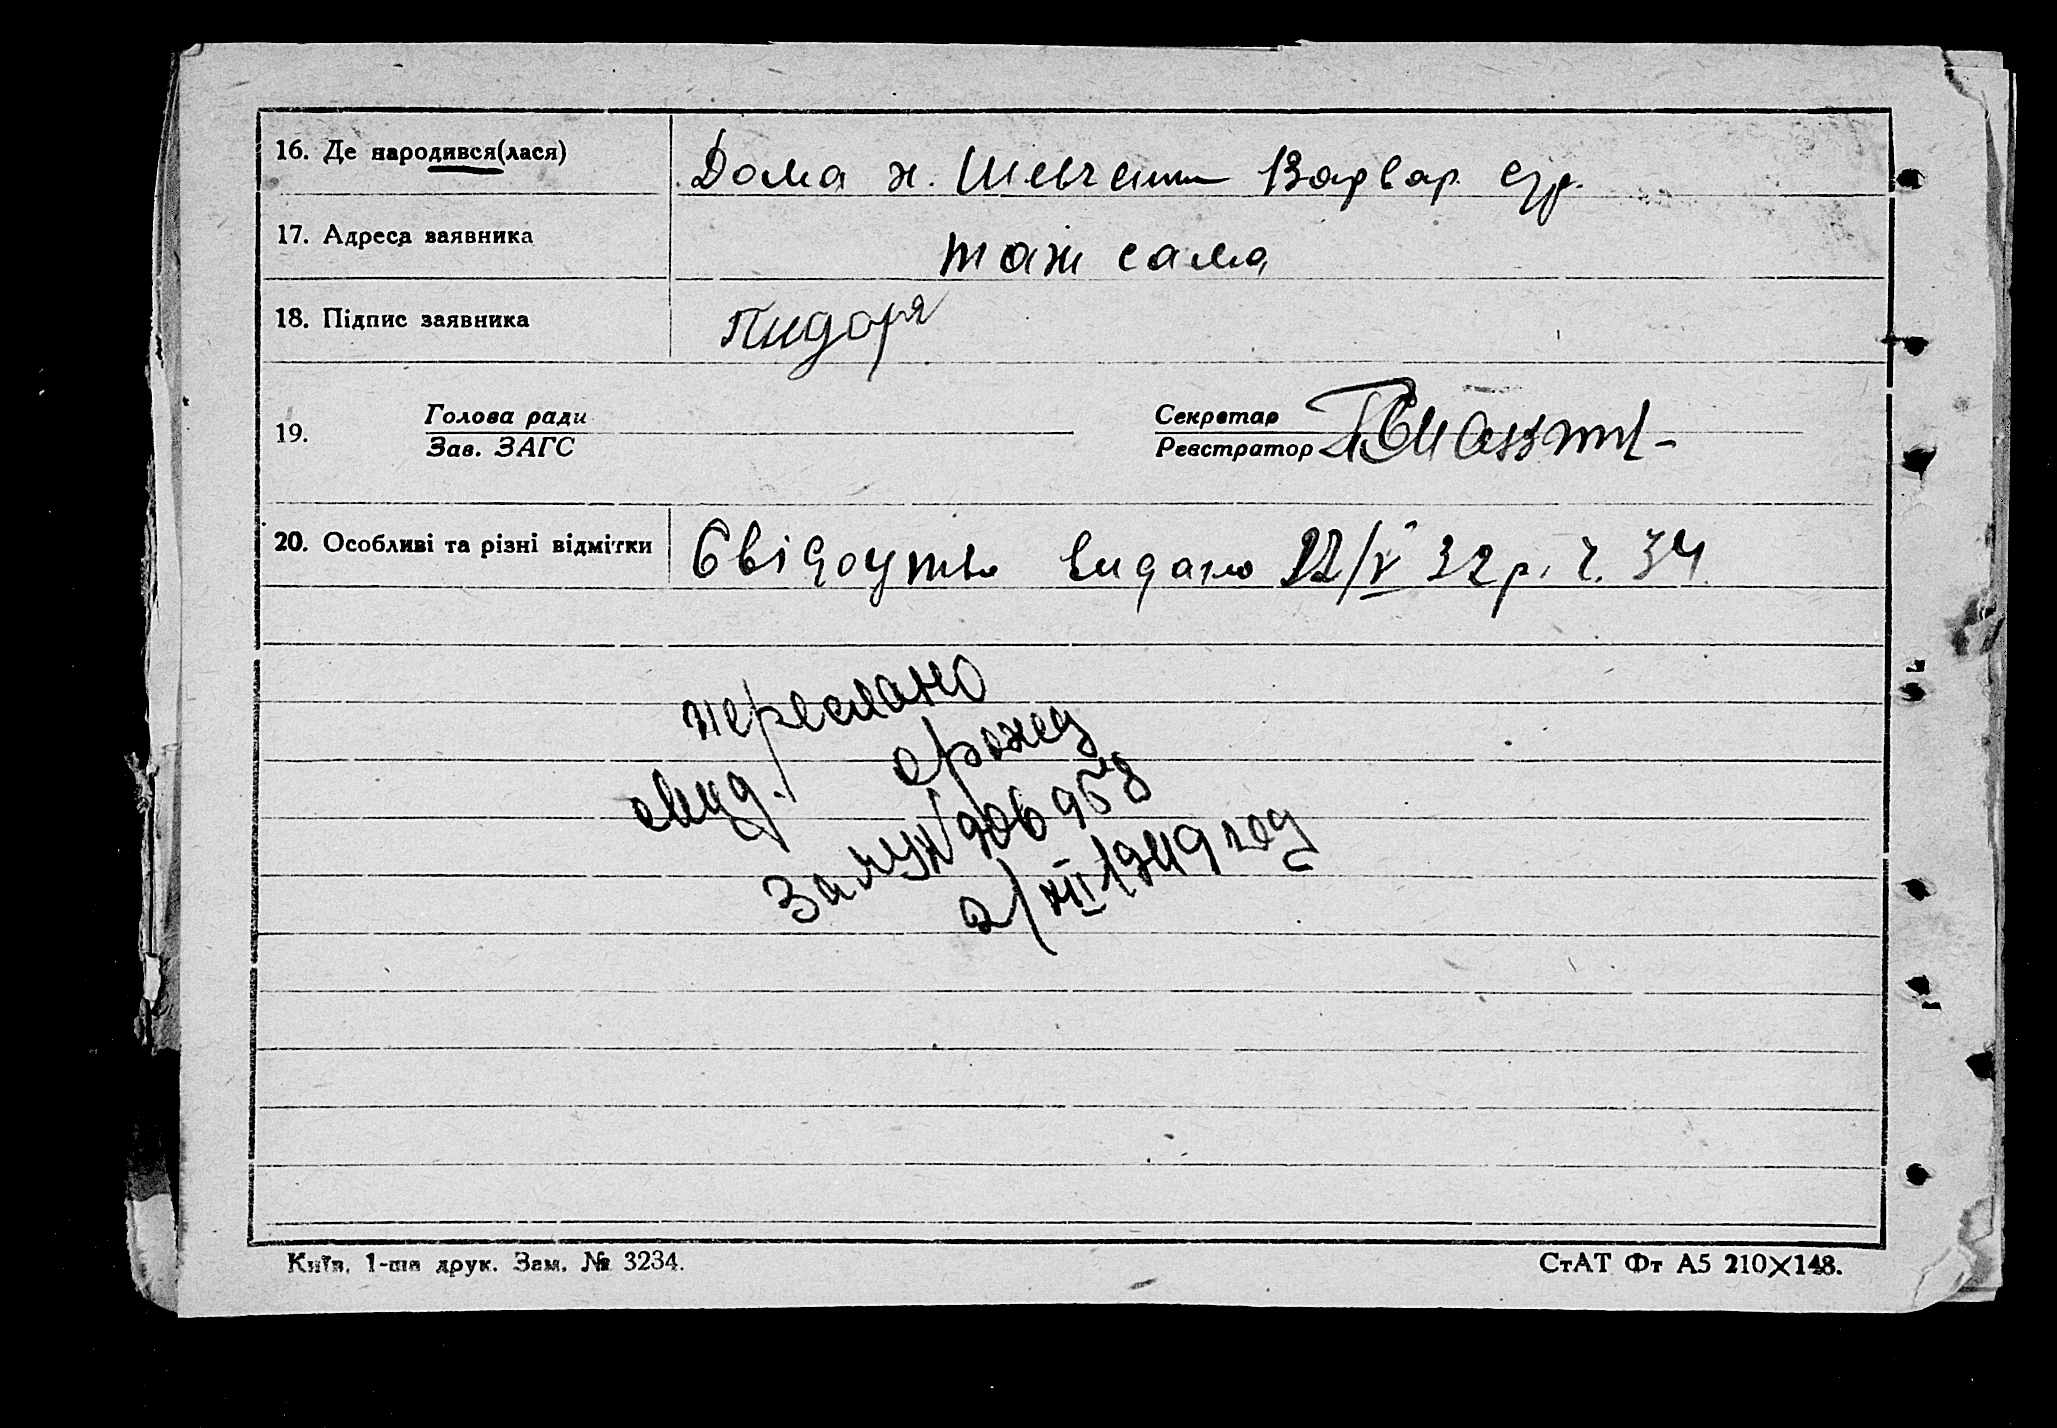 16. Де народився(лася) Дома х. Шевченки Варвар. ср.
17. Адреса заявника таж сама
18. Підпис заявника Пидоря
19. Голова ради Секретар
Зав. ЗАГС Реєстратор
20. Особливі та різні відмітки Свідоцтво видано 22/V 32 р. ч. 34
переслано
свид. о рожед
За ЛУЖ 906958
2/XII 1949 год
Київ, 1-ша друк. Зам. № 3234.
СтАТ Фт А5 210×148.